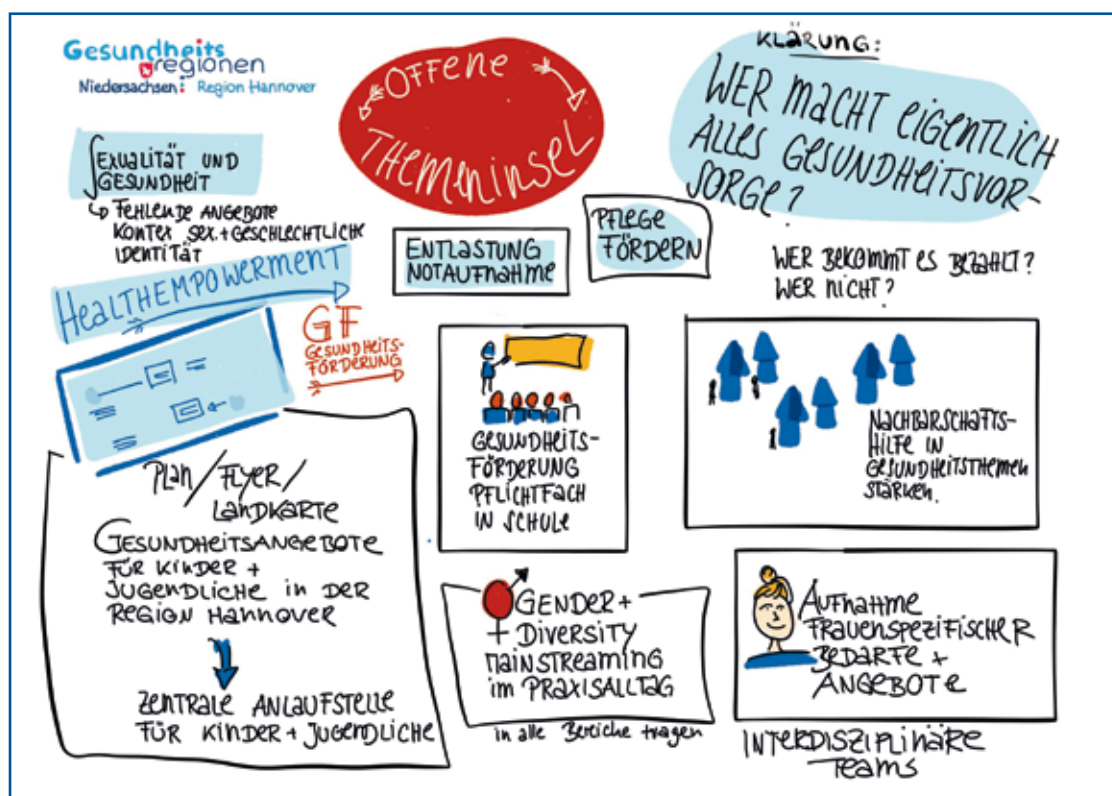 Gesundheits
regionen
Niedersachsen: Region Hannover
OFFENE
THEMENINSEL
KLÄRUNG:
WER MACHT EIGENTLICH
ALLES GESUNDHEITSVOR-
SORGE?
WER BEKOMMT ES BEZAHLT?
WER NICHT?
SEXUALITÄT UND
GESUNDHEIT
FEHLENDE ANGEBOTE
KONTEX SEX.+GESCHLECHTLICHE
IDENTITÄT
HEALTHEMPOWERMENT
GF
GESUNDHEITS-
FÖRDERUNG
ENTLASTUNG
NOTAUFNAHME
PFLEGE
FÖRDERN
PLAN/FLYER/
LANDKARTE
GESUNDHEITSANGEBOTE
FÜR KINDER +
JUGENDLICHE IN DER
REGION HANNOVER
ZENTRALE ANLAUFSTELLE
FÜR KINDER + JUGENDLICHE
GESUNDHEITS-
FÖRDERUNG
PFLICHTFACH
IN SCHULE
NACHBARSCHAFTS-
HILFE IN
GESUNDHEITSTHEMEN
STÄRKEN.
GENDER +
+ DIVERSITY
MAINSTREAMING
IM PRAXISALLTAG
in alle Bereiche tragen
AUFNAHME
FRAUENSPEZIFISCHER
BEDARFE +
ANGEBOTE
INTERDISZIPLINÄRE
TEAMS